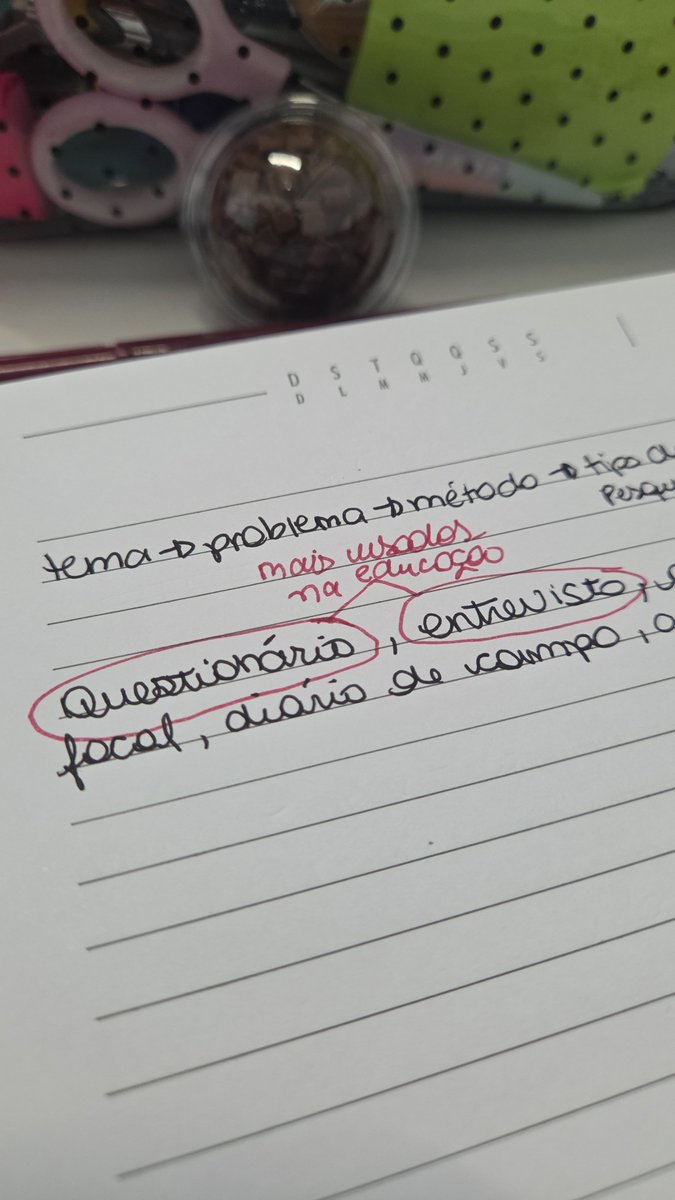 D S T Q Q S S
D L M M J V S
tema → problema → método → tipo
mais usados
na educação
Questionário, entrevista,
focal, diário de campo,